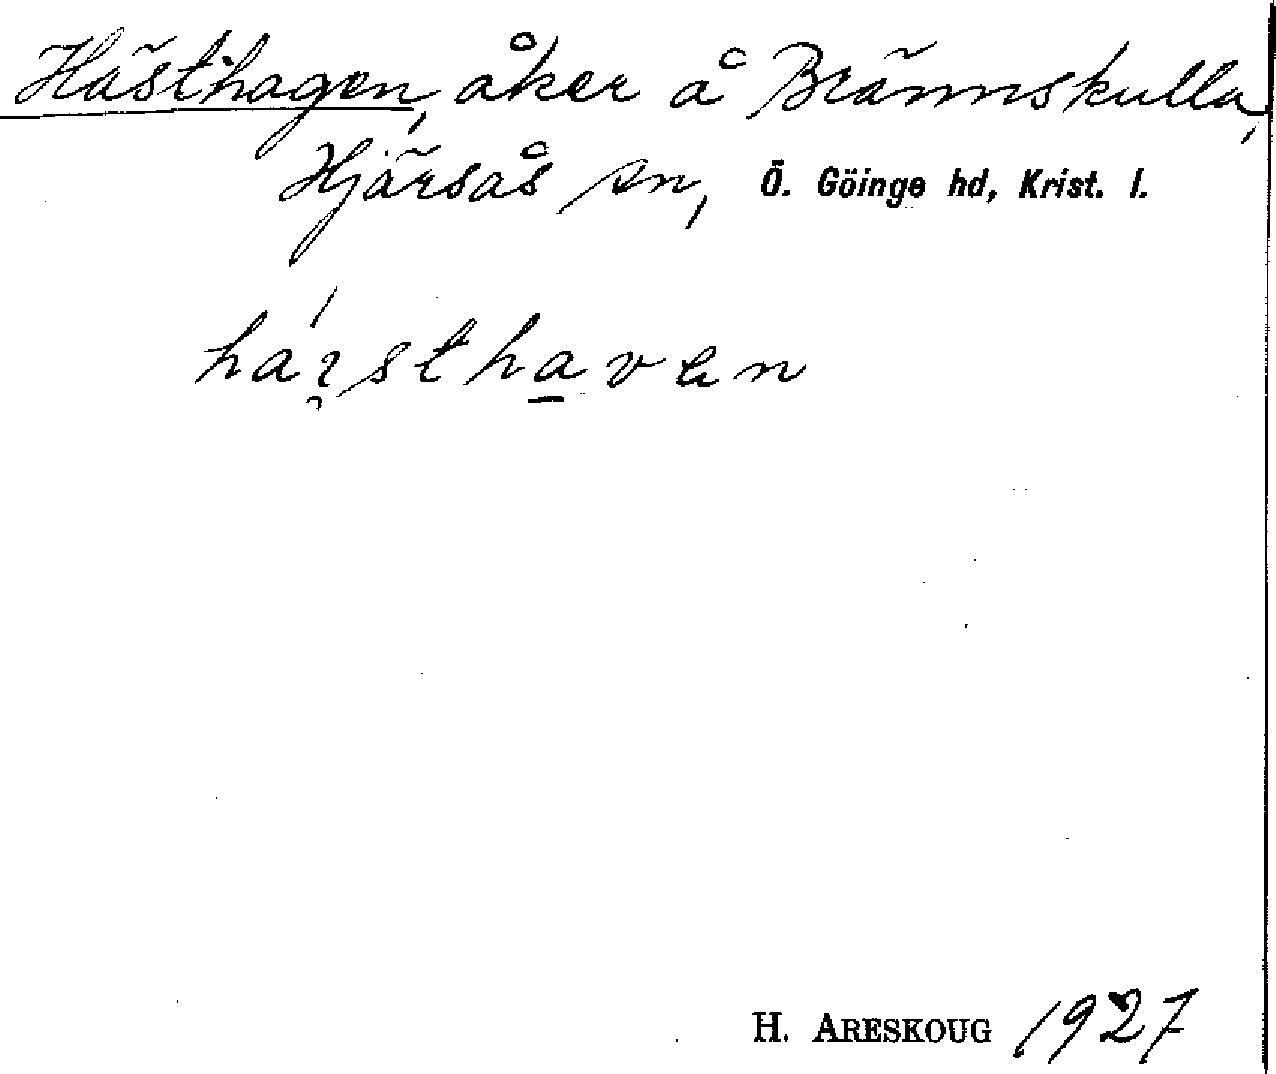 Hästhagen, åker å Brännskulla,
Hjärsås sn, Ö. Göinge hd, Krist. l.
hạ́ɿsthavɐn
H. ARESKOUG 1927